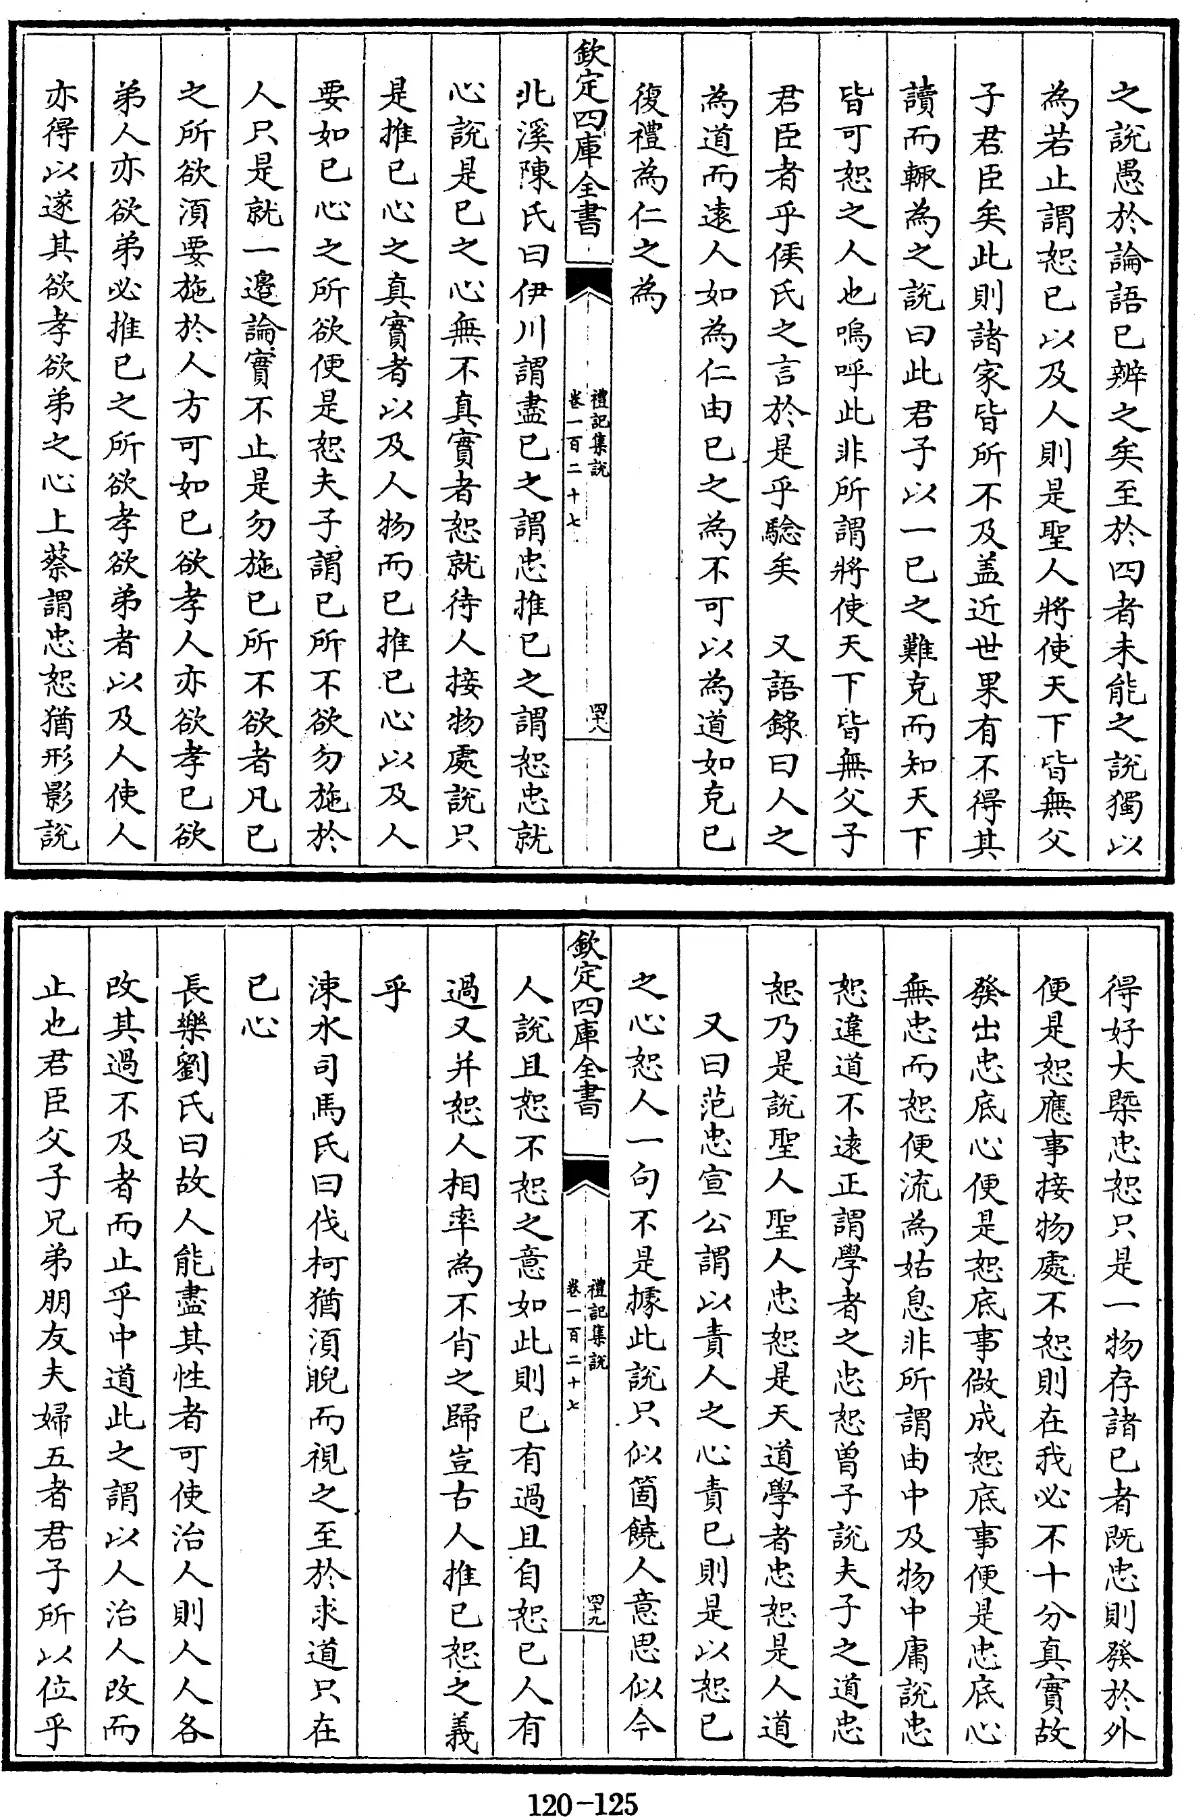 之說愚於論語已辨之矣至於四者未能之說獨以
為若止謂恕已以及人則是聖人將使天下皆無父
子君臣矣此則諸家皆所不及盖近世果有不得其
讀而輙為之說曰此君子以一已之難克而知天下
皆可恕之人也嗚呼此非所謂將使天下皆無父子
君臣者乎侯氏之言於是乎驗矣　又語錄曰人之
為道而逺人如為仁由已之為不可以為道如克已
復禮為仁之為
欽定四庫全書
禮記集說
卷一百二十七
四十八
北溪陳氏曰伊川謂盡已之謂忠推已之謂恕忠就
心說是已之心無不真實者恕就待人接物處說只
是推已心之真實者以及人物而已推已心以及人
要如已心之所欲便是恕夫子謂已所不欲勿施於
人只是就一邉論實不止是勿施已所不欲者凡已
之所欲湏要施於人方可如已欲孝人亦欲孝已欲
弟人亦欲弟必推已之所欲孝欲弟者以及人使人
亦得以遂其欲孝欲弟之心上蔡謂忠恕猶形影說
得好大槩忠恕只是一物存諸已者既忠則發於外
便是恕應事接物處不恕則在我必不十分真實故
發出忠底心便是恕底事做成恕底事便是忠底心
無忠而恕便流為姑息非所謂由中及物中庸說忠
恕違道不逺正謂學者之忠恕曾子說夫子之道忠
恕乃是說聖人聖人忠恕是天道學者忠恕是人道
又曰范忠宣公謂以責人之心責已則是以恕已
之心恕人一句不是據此說只似箇饒人意思似今
欽定四庫全書
禮記集說
卷一百二十七
四十九
人說且恕不恕之意如此則已有過且自恕已人有
過又并恕人相率為不肖之歸豈古人推已恕之義
乎
涑水司馬氏曰伐柯猶湏睨而視之至於求道只在
已心
長樂劉氏曰故人能盡其性者可使治人則人人各
改其過不及者而止乎中道此之謂以人治人改而
止也君臣父子兄弟朋友夫婦五者君子所以位乎
120-125